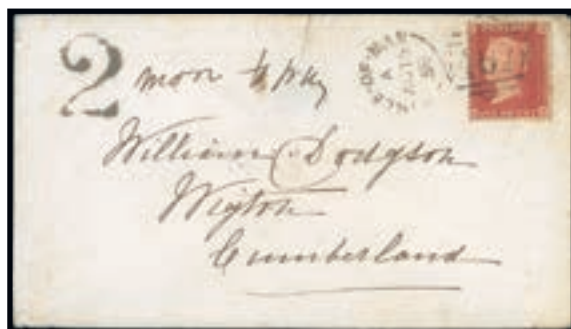 2 more to pay
ISLE-OF-MAN
William Dodgson
Wigton
Cumberland